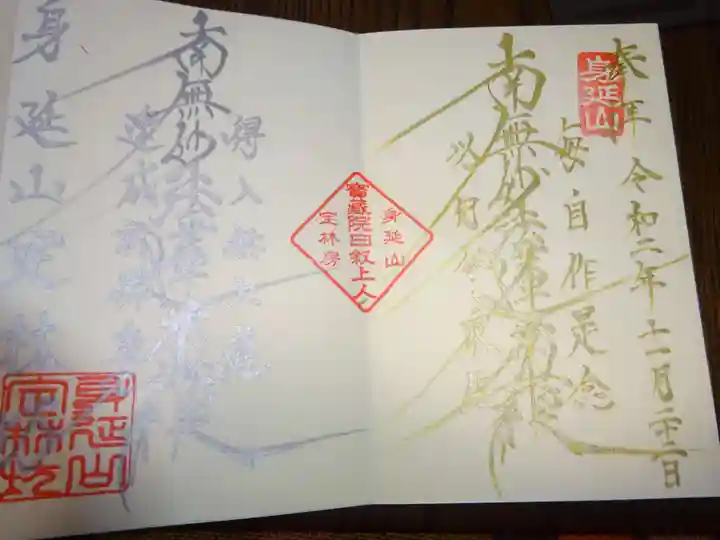 奉拝 令和二年十一月二十二日
身延山
毎自作是念
以何令衆生
南無妙法蓮華経
身延山
寶蔵院日叙上人
定林房
得入無上道
速成就佛身
南無妙法蓮華経
身延山定林坊
身延山
定林坊